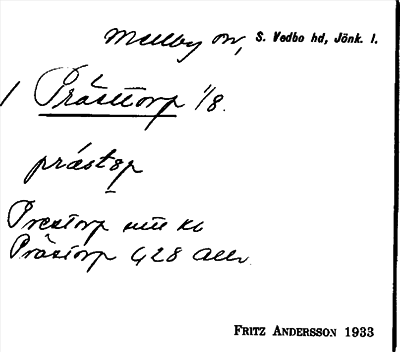 Mellby sn, S. Vedbo hd, Jönk. l.
1 Prästtorp 1/8.
prástop
Prestorp mtl kb
Prästorp G28 allm
FRITZ ANDERSSON 1933